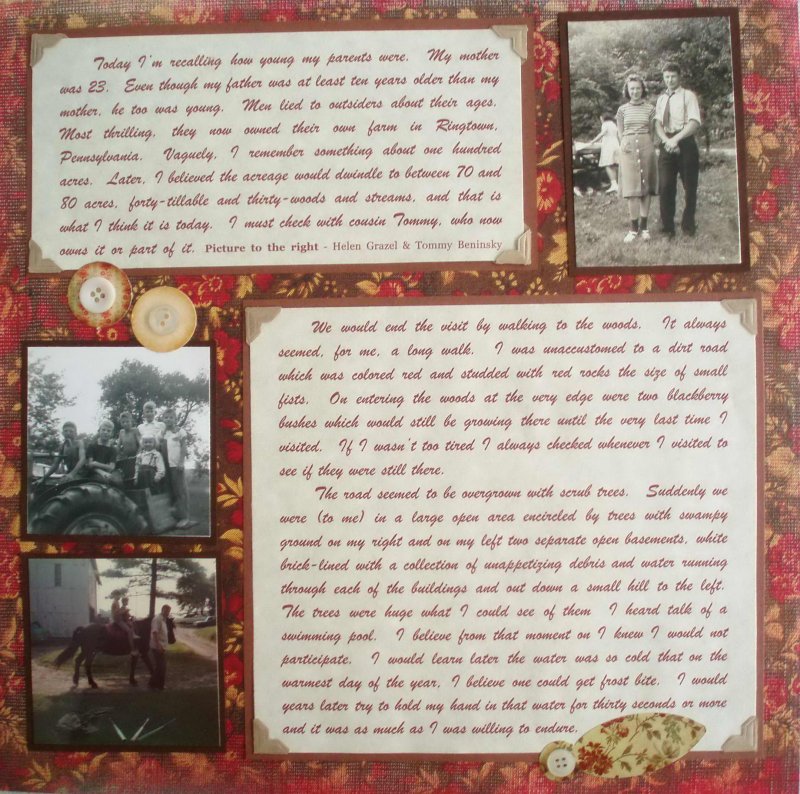 Today I'm recalling how young my parents were. My mother
was 23. Even though my father was at least ten years older than my
mother, he too was young. Men lied to outsiders about their ages.
Most thrilling, they now owned their own farm in Ringtown,
Pennsylvania. Vaguely, I remember something about one hundred
acres. Later, I believed the acreage would dwindle to between 70 and
80 acres, forty-tillable and thirty-woods and streams, and that is
what I think it is today. I must check with cousin Tommy, who now
owns it or part of it. Picture to the right - Helen Grazel & Tommy Beninsky
We would end the visit by walking to the woods. It always
seemed, for me, a long walk. I was unaccustomed to a dirt road
which was colored red and studded with red rocks the size of small
fists. On entering the woods at the very edge were two blackberry
bushes which would still be growing there until the very last time I
visited. If I wasn't too tired I always checked whenever I visited to
see if they were still there.
The road seemed to be overgrown with scrub trees. Suddenly we
were (to me) in a large open area encircled by trees with swampy
ground on my right and on my left two separate open basements, white
brick-lined with a collection of unappetizing debris and water running
through each of the buildings and out down a small hill to the left.
The trees were huge what I could see of them I heard talk of a
swimming pool. I believe from that moment on I knew I would not
participate. I would learn later the water was so cold that on the
warmest day of the year, I believe one could get frost bite. I would
years later try to hold my hand in that water for thirty seconds or more
and it was as much as I was willing to endure.